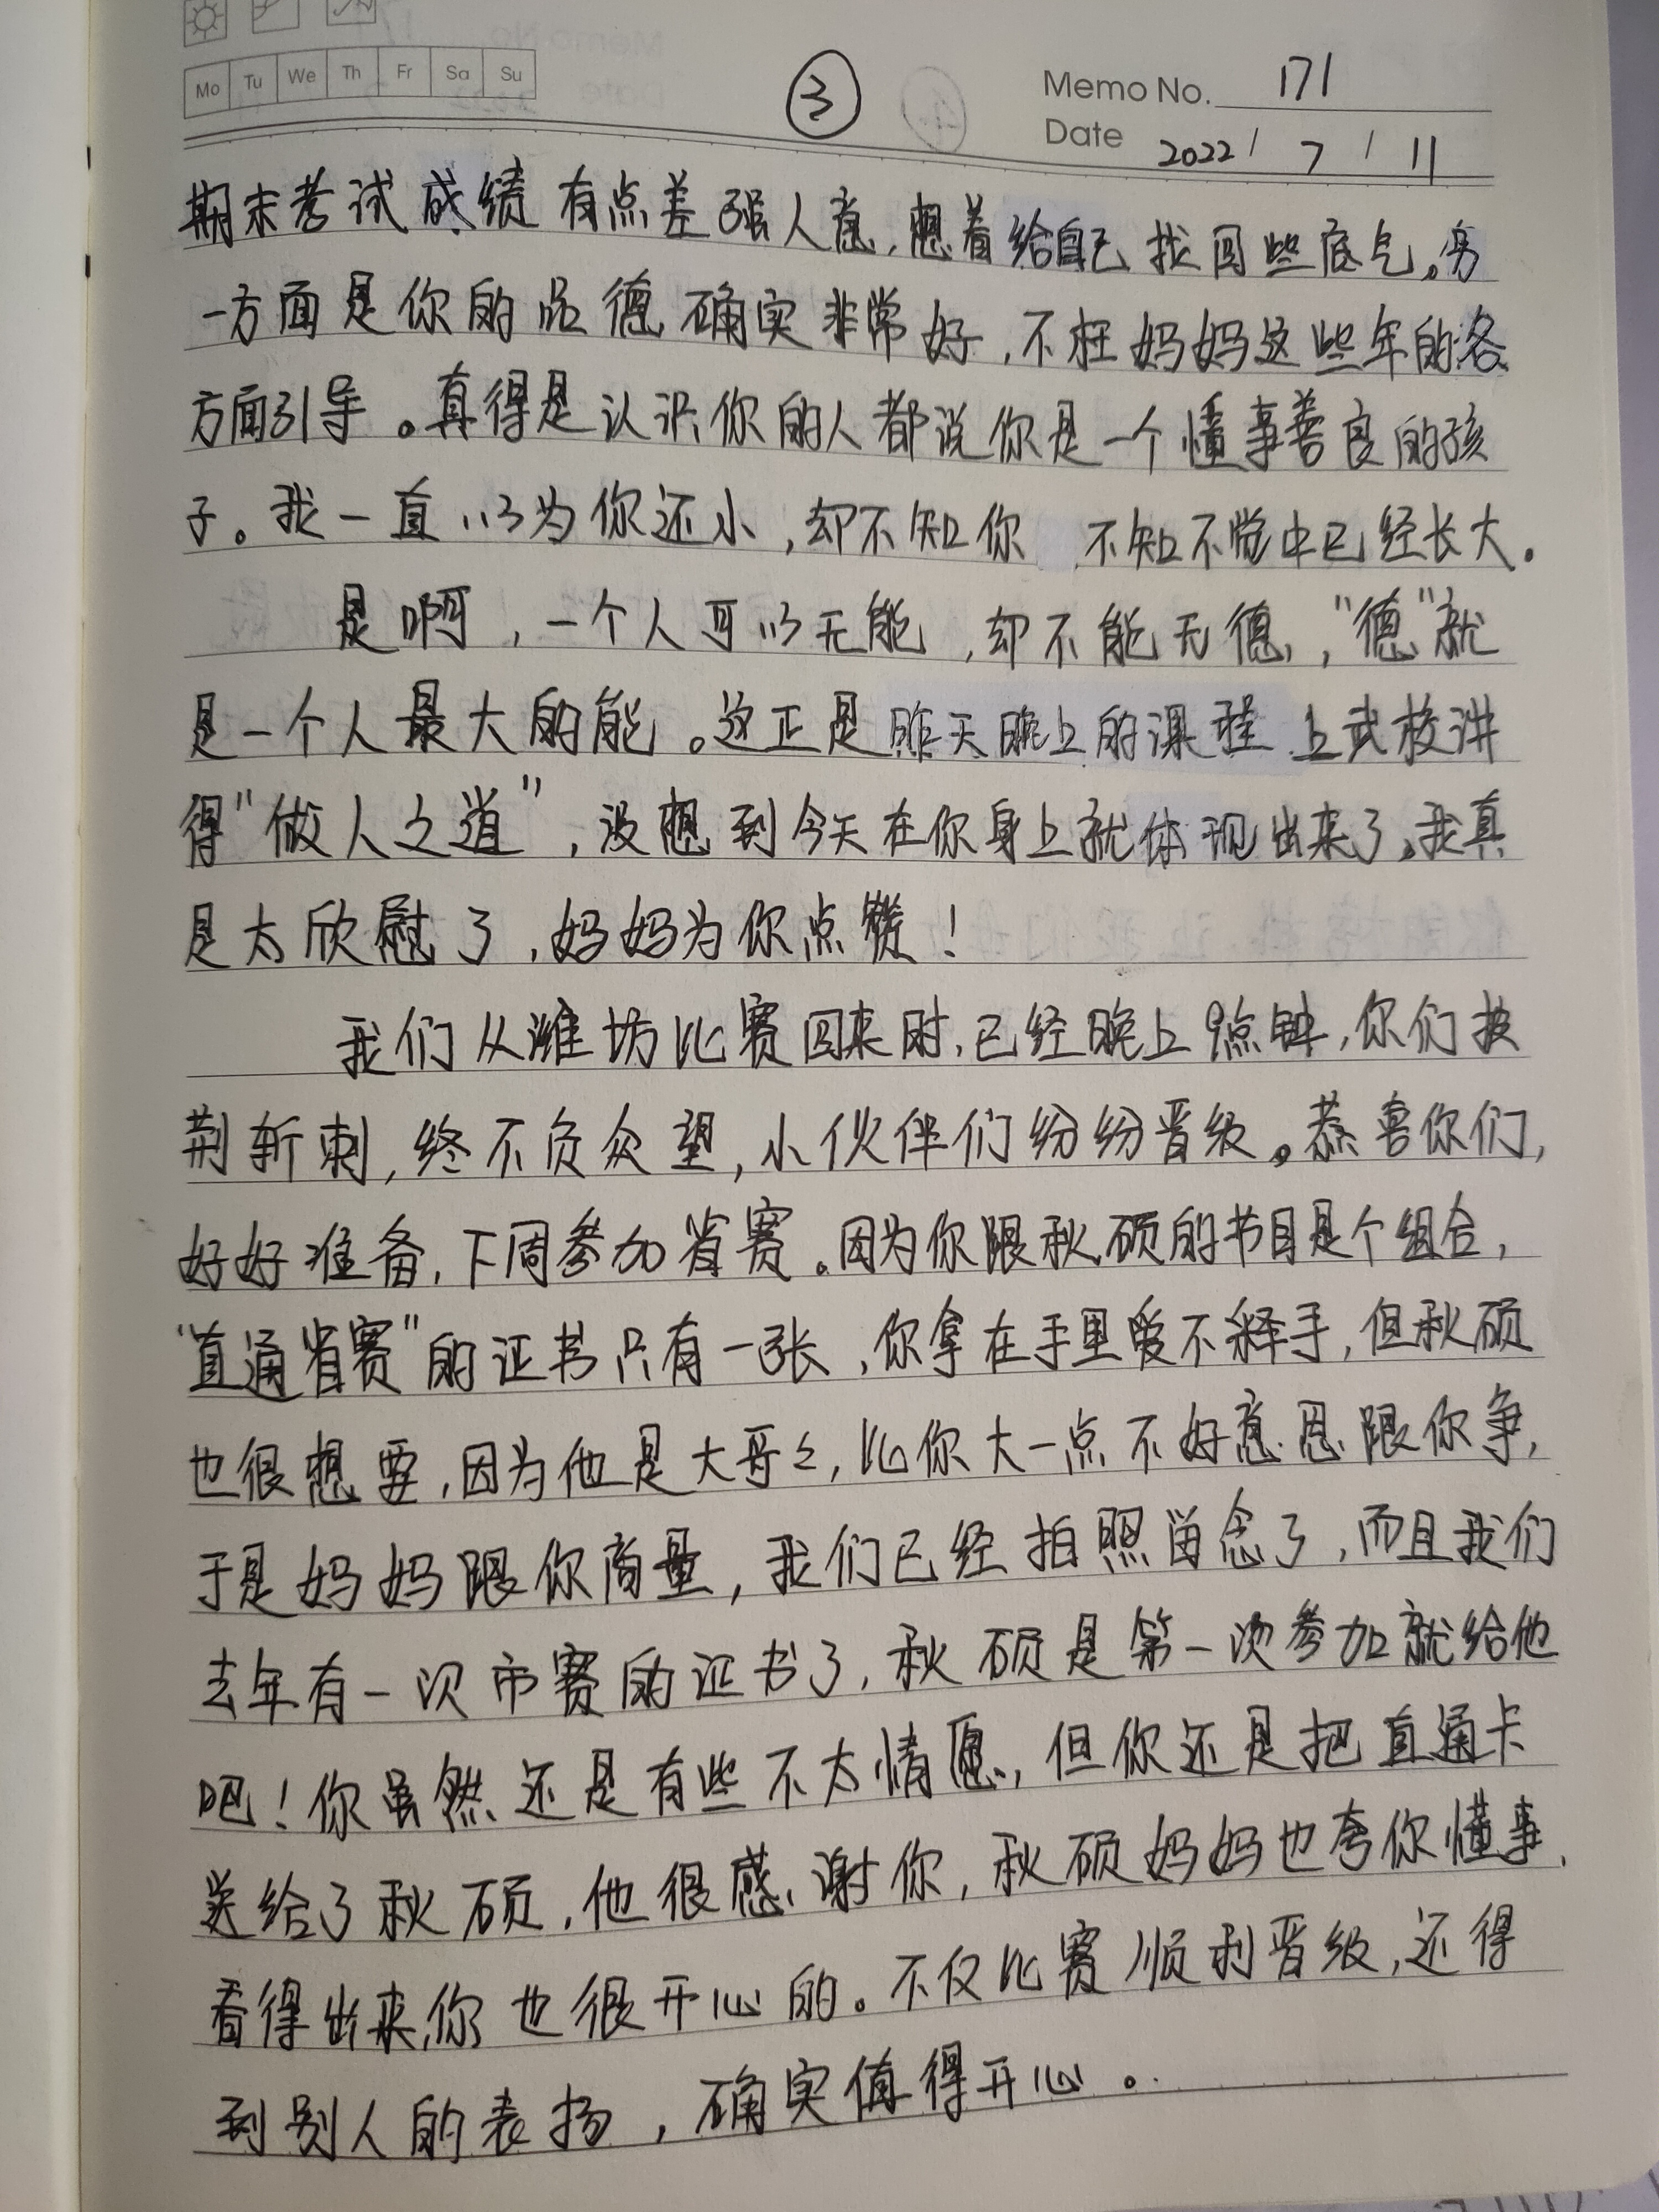 Mo Tu We Th Fr Sa Su
③
Memo No. 171
Date 2022 / 7 / 11
期末考试成绩有点差强人意,想着给自己找回些底气。另
一方面是你的品德确实非常好,不枉妈妈这些年的各
方面引导。真得是认识你的人都说你是一个懂事善良的孩
子。我一直以为你还小,却不知你 不知不觉中已经长大。
是啊,一个人可以无能,却不能无德,“德”就
是一个人最大的能。这正是昨天晚上的课程上武校讲
得“做人之道”,没想到今天在你身上就体现出来了。我真
是太欣慰了,妈妈为你点赞!
我们从潍坊比赛回来时,已经晚上9点钟,你们披
荆斩刺,终不负众望,小伙伴们纷纷晋级。恭喜你们,
好好准备,下周参加省赛。因为你跟秋硕的节目是个组合,
“直通省赛”的证书只有一张,你拿在手里爱不释手,但秋硕
也很想要,因为他是大哥哥,比你大一点不好意思跟你争,
于是妈妈跟你商量,我们已经拍照留念了,而且我们
去年有一次市赛的证书了,秋硕是第一次参加就给他
吧!你虽然还是有些不太情愿,但你还是把直通卡
送给了秋硕,他很感谢你,秋硕妈妈也夸你懂事,
看得出来,你也很开心的。不仅比赛顺利晋级,还得
到别人的表扬,确实值得开心。